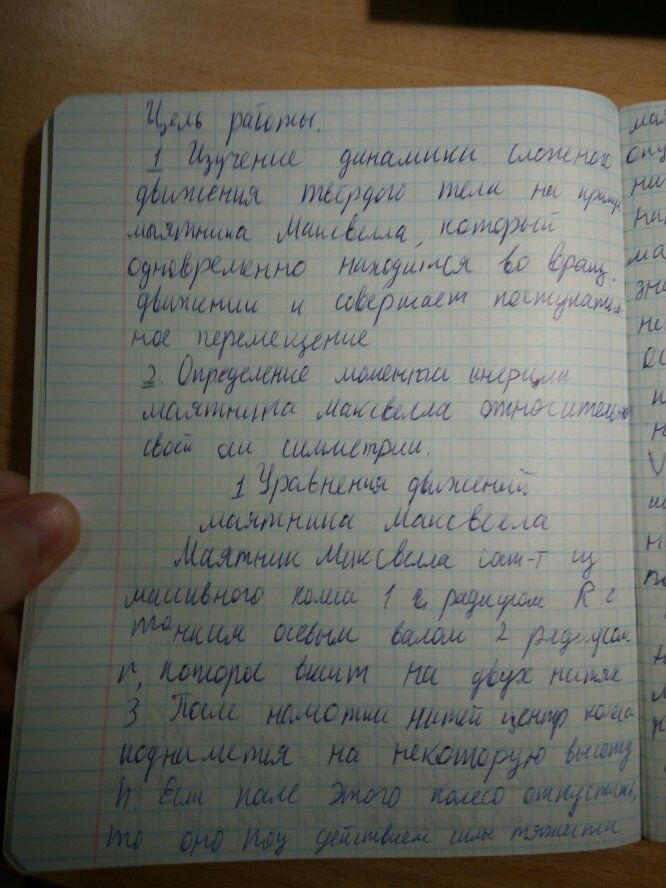 Цель работы.
1 Изучение динамики сложного
движения твердого тела на пример
маятника Максвелла, который
одновременно находится во вращ.
движении и совершает поступатель
ное перемещение
2. Определение момента инерции
маятника Максвелла относительно
своей оси симметрии.
1 Уравнения движений
маятника Максвелла
Маятник Максвелла сост-т из
массивного колеса 1 радиусом R с
тонким осевым валом 2 радиусом
r, которое висит на двух нитях
3. После намотки нитей центр колеса
поднимется на некоторую высоту
h. Если после этого колесо отпустить,
то оно под действием силы тяжести
мая
опу
ни
на
ма
зна